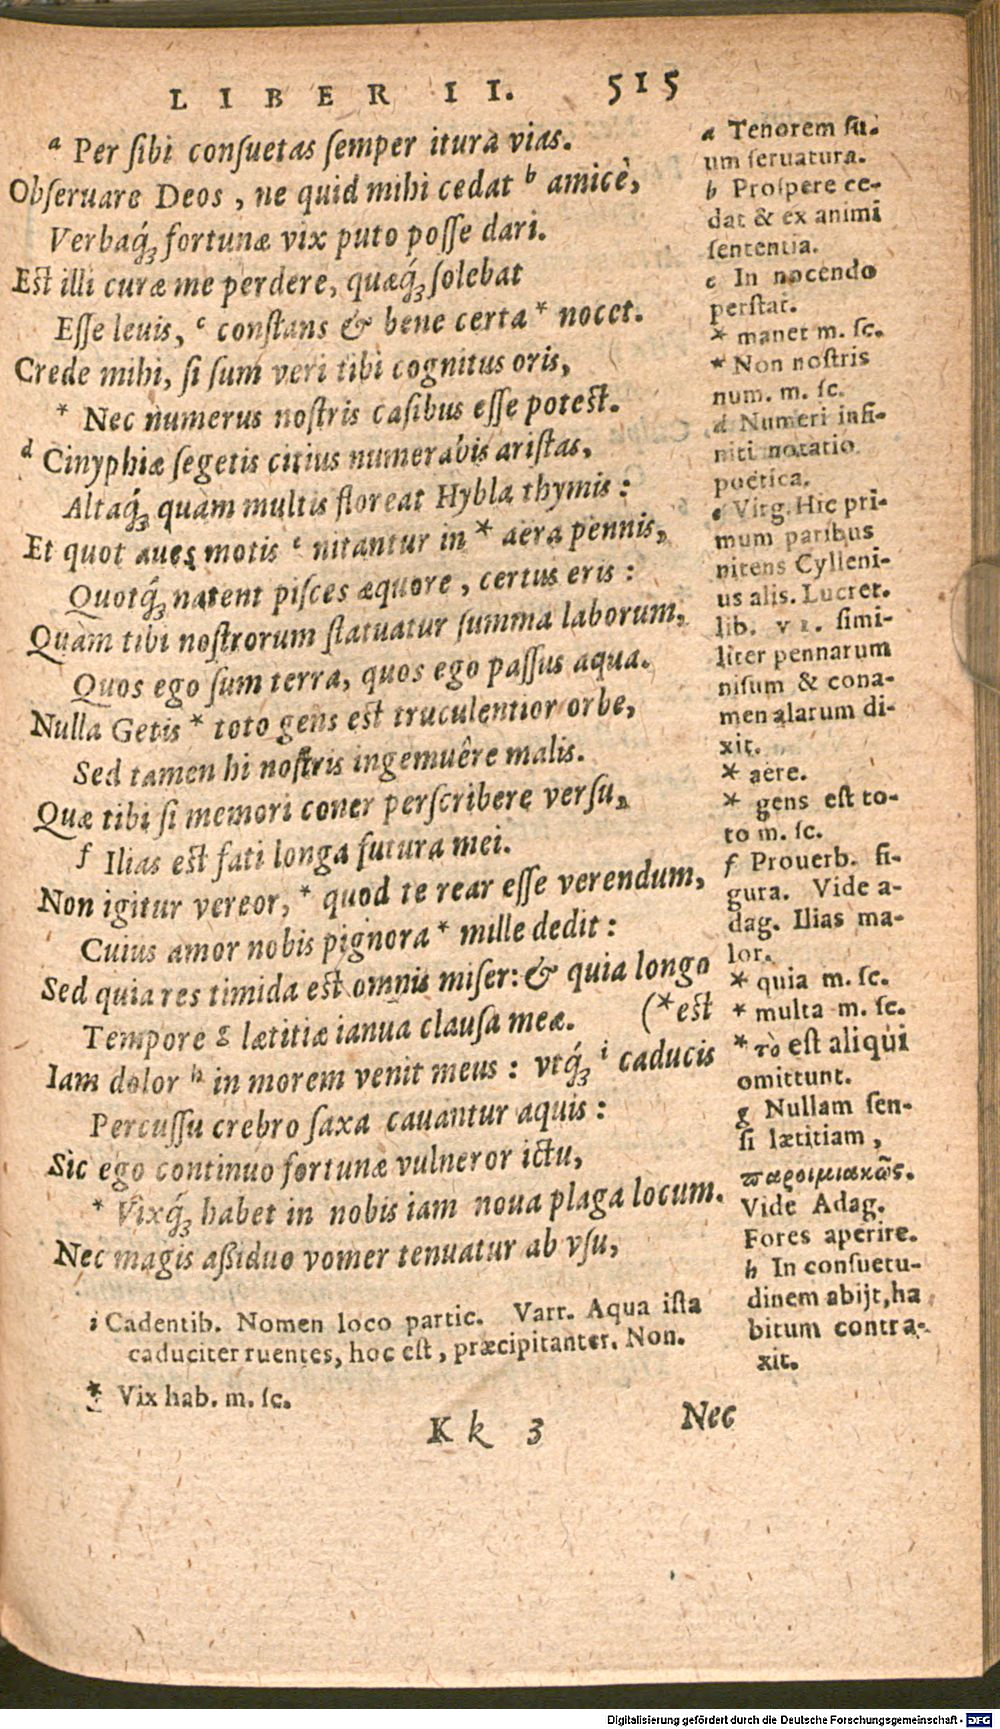 LIBER II. 515
a Per ſibi conſuetas ſemper itura vias.
Obſeruare Deos, ne quid mihi cedat b amicè,
Verbaq́ꝫ fortunæ vix puto poſſe dari.
Est illi curæ me perdere, quæq́ꝫ ſolebat
Eſſe leuis, c conſtans & bene certa * nocet.
Crede mihi, ſi ſum veri tibi cognitus oris,
* Nec numerus noſtris caſibus eſſe potest.
d Cinyphiæ ſegetis citius numerabis ariſtas,
Altaq́ꝫ quam multis floreat Hybla thymis:
Et quot aues motis e nitantur in * aera pennis,
Quotq́ꝫ natent piſces æquore, certus eris:
Quàm tibi noſtrorum ſtatuatur ſumma laborum,
Quos ego ſum terra, quos ego paſſus aqua.
Nulla Getis * toto gens est truculentior orbe,
Sed tamen hi noſtris ingemuêre malis.
Quæ tibi ſi memori coner perſcribere verſu,
f Ilias est fati longa futura mei.
Non igitur vereor, * quod te rear eſſe verendum,
Cuius amor nobis pignora * mille dedit:
Sed quia res timida est omnis miſer: & quia longo
Tempore g lætitiæ ianua clauſa meæ. (* est
Iam dolor h in morem venit meus: vtq́ꝫ i caducis
Percuſſu crebro ſaxa cauantur aquis:
Sic ego continuo fortunæ vulneror ictu,
* Vixq́ꝫ habet in nobis iam noua plaga locum.
Nec magis aßiduo vomer tenuatur ab vſu,
a Tenorem ſu-
um ſeruatura.
b Proſpere ce-
dat & ex animi
ſententia.
c In nocendo
perſtat.
* manet m. ſc.
* Non noſtris
num. m. ſc.
d Numeri infi-
niti notatio
poëtica.
e Virg. Hic pri-
mum paribus
nitens Cylleni-
us alis. Lucret.
lib. VI. ſimi-
liter pennarum
niſum & cona-
men alarum di-
xit.
* aere.
* gens est to-
to m. ſc.
f Prouerb. fi-
gura. Vide a-
dag. Ilias ma-
lor.
* quia m. ſc.
* multa m. ſc.
* τὸ est aliqui
omittunt.
g Nullam ſen-
ſi lætitiam,
παροιμιακῶς.
Vide Adag.
Fores aperire.
h In conſuetu-
dinem abijt, ha
bitum contra-
xit.
i Cadentib. Nomen loco partic. Varr. Aqua iſta
caduciter ruentes, hoc eſt, præcipitanter. Non.
* Vix hab. m. ſc.
Kk 3 Nec
Digitalisierung gefördert durch die Deutsche Forschungsgemeinschaft - DFG